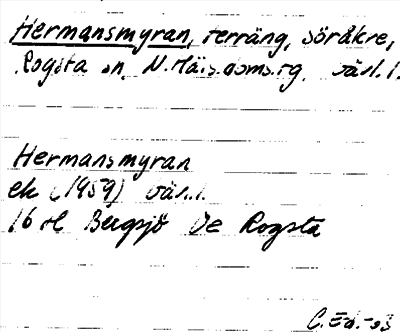 Hermansmyran, terräng, Söråkre,
Rogsta sn, N. Häls. doms.tg. Gävl. l.
Hermansmyran
ek (1959) Gävl. l.
16 H Bergsjö De Rogsta